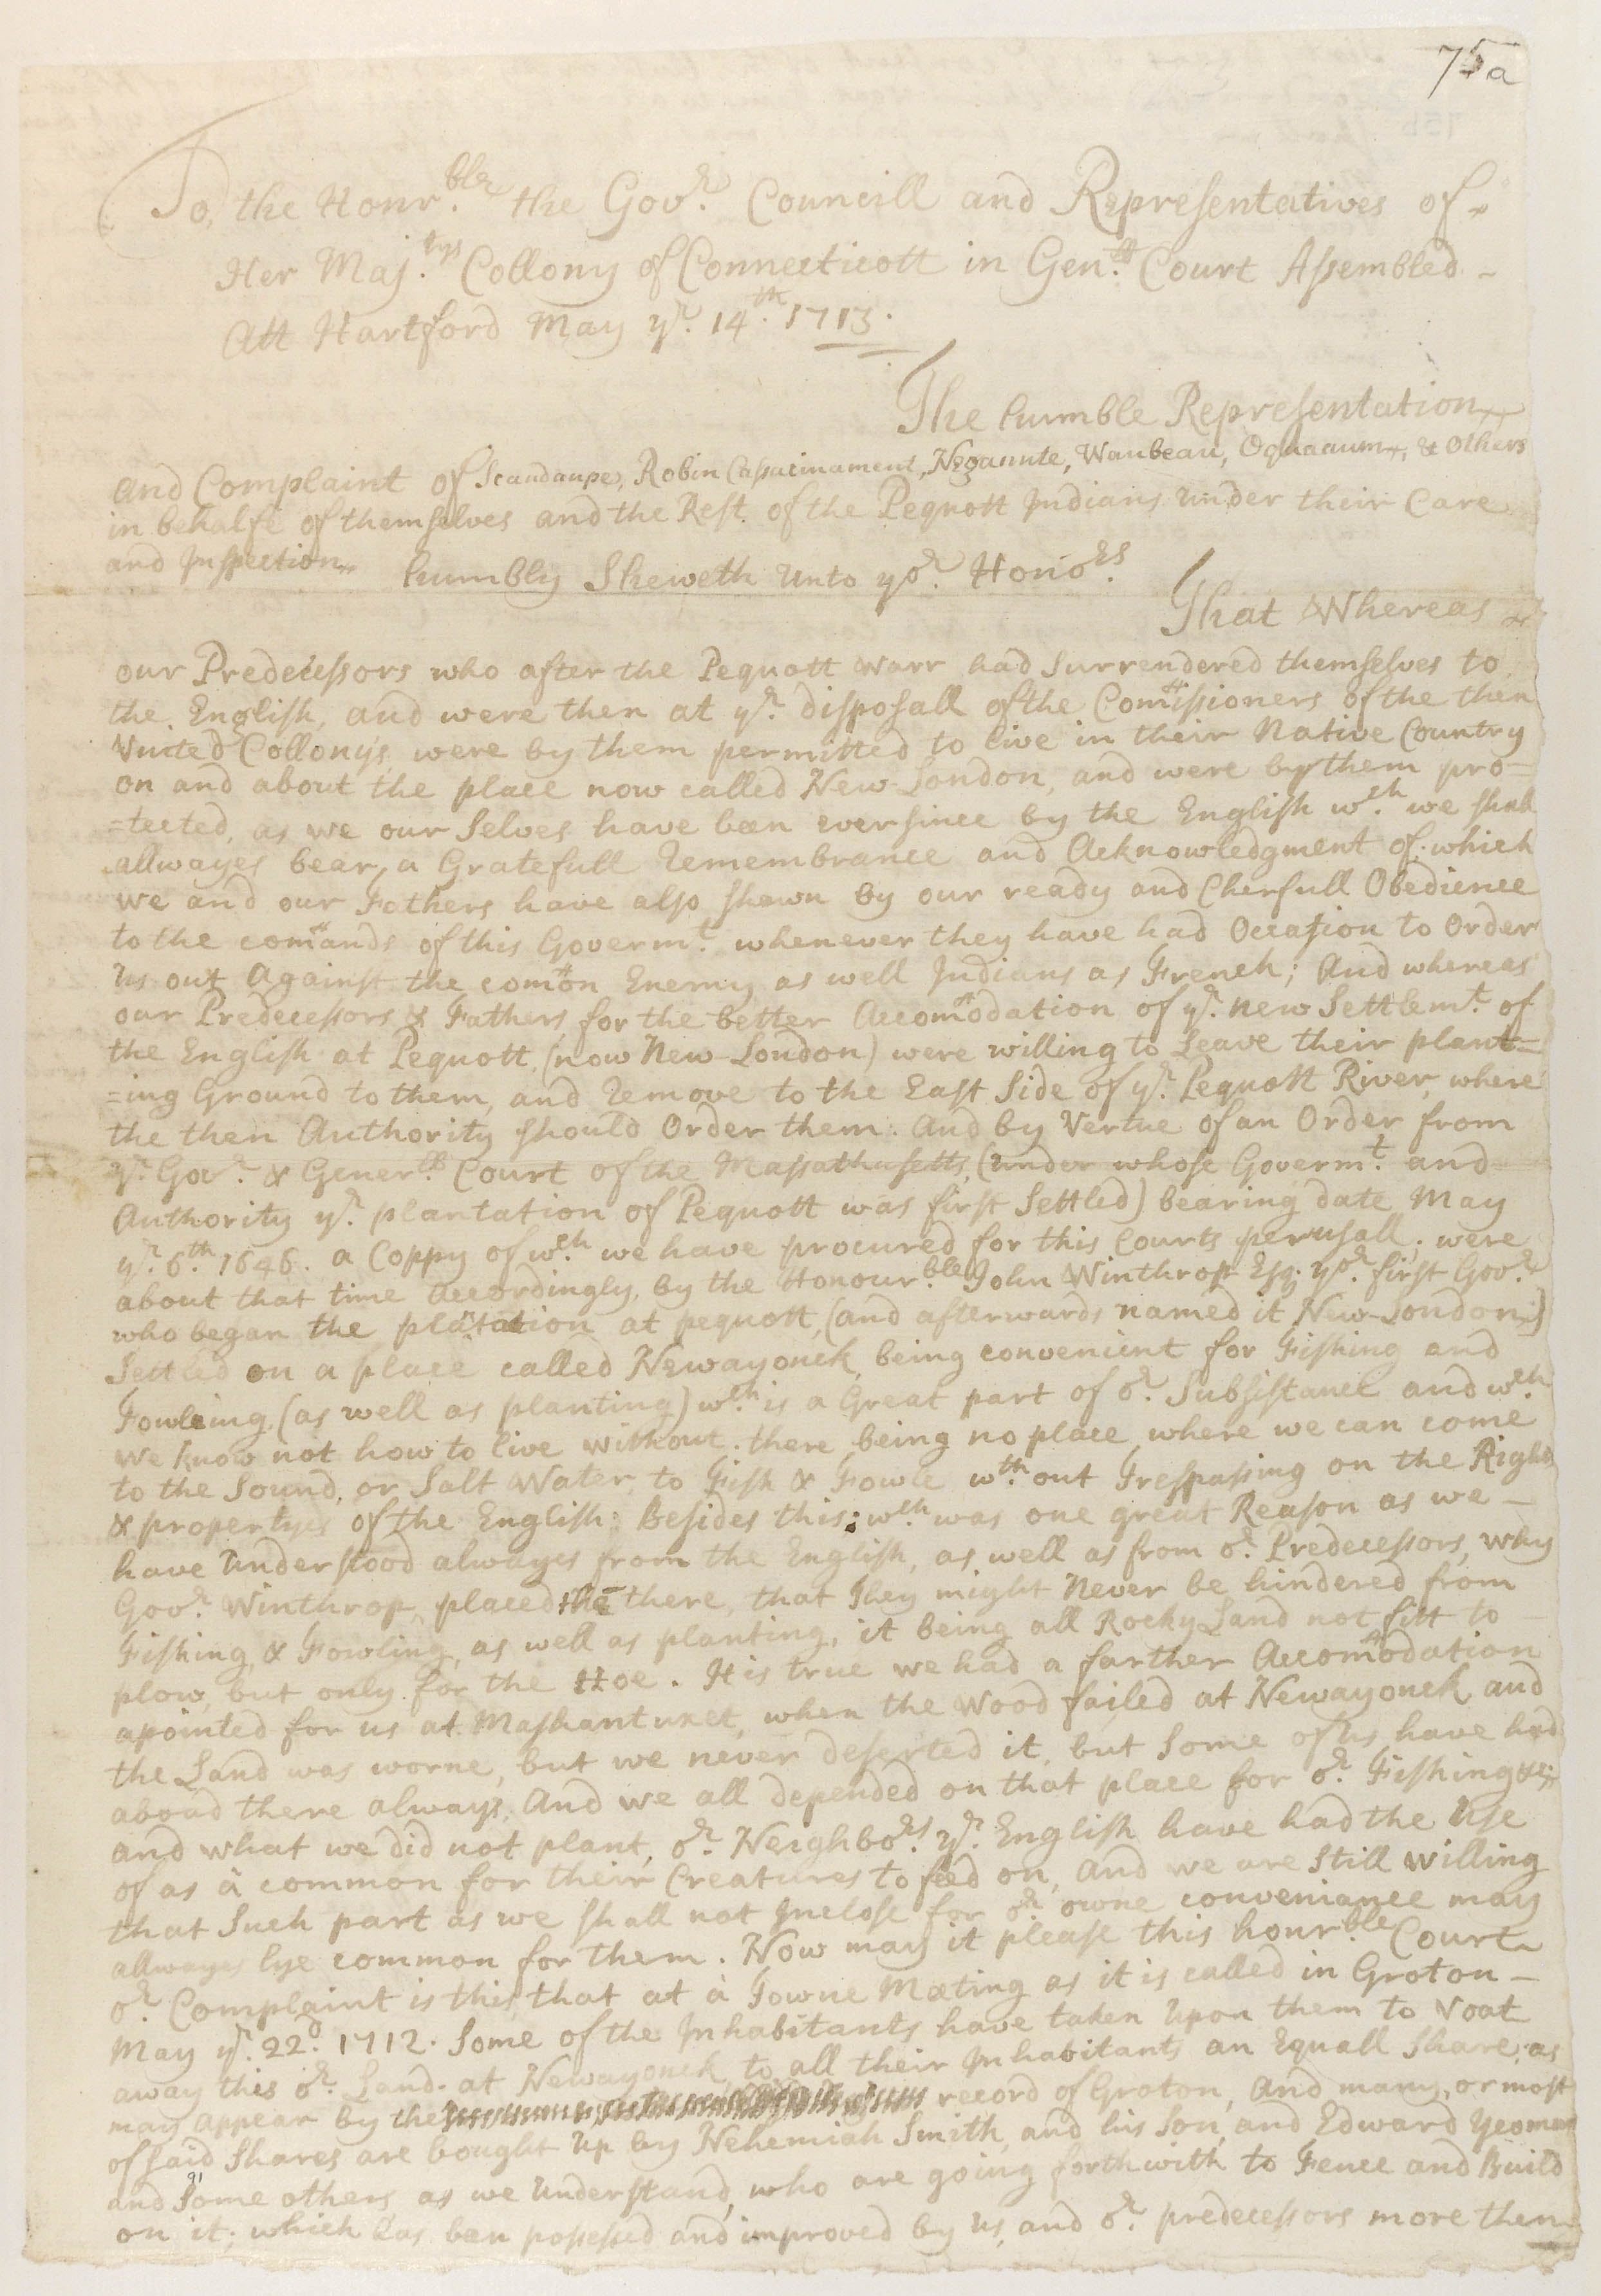 75a
To, the Honr.ble the Gov.r Councill and Representatives of
Her Maj.tys Collony of Connecticott in Gen.ll Court Assembled -
Att Hartford May y.e 14.th 1713.
The humble Representation
and Complaint of Scaudaupe, Robin Cassacinament, Negannte, Waubeau, Oquaaum, & Others
in behalfe of themselves and the Rest of the Pequott Indians under their Care
and Inspection humbly Sheweth Unto yo.r Hono.rs
That Whereas
our Predecessors who after the Pequott warr had Surrendered themselves to
the English, and were then at y.e disposall of the Comissioners of the then
United Collonys were by them permitted to live in their Native Country
on and about the place now called New-London, and were by them pro-
=tected, as we our Selves have been ever since by the English w.ch we shall
allwayes bear, a Gratefull remembrance and Acknowledgment of. which
we and our Fathers have also shewn by our ready and Cherfull Obedience
to the comands of this Governm.t whenever they have had Occasion to Order
us out Against the comon Enemy as well Indians as French; And whereas
our Predecessors & Fathers for the better Accomodation of y.e new Settlem.t of
the English at Pequott, (now New-London) were willing to Leave their plant=
=ing Ground to them, and remove to the East Side of y.e Pequott River, where
the then Authority should Order them. And by Vertue of an Order from
y.e Gov.r & Gener.ll Court of the Massathusetts, (under whose Governm.t and
Authority y.e plantation of Pequott was first Settled) bearing date May
y.e 6.th 1646. a Coppy of w.ch we have procured for this Courts perusall; were
about that time Accordingly, by the Honour.ble John Winthrop Esq; yo.r first Gov.r
who began the platation at pequott, (and afterwards named it New-London;)
Settled on a place called Newayonck, being convenient for Fishing and
Fowleing (as well as planting) w.ch is a Great part of o.r Subsistance and w.ch
we know not how to live without. there being no place where we can come
to the Sound, or Salt Water, to Fish & Fowle w.th out Trespassing on the Right
& propertyes of the English: Besides this; w.ch was one great Reason as we -
have Understood alwayes from the English, as well as from o.r Predecessors, why
Gov.r Winthrop, placed thē there, that They might Never be hindered from
Fishing, & Fowling, as well as planting, it being all Rocky Land not fitt to
plow, but only for the Hoe. It is true we had a farther Accomodation
apointed for us at Mashantuxet, when the Wood failed at Newayonck and
the Land was worne, but we never deserted it, but Some of us have had
aboad there always. And we all depended on that place for o.r Fishing &c;
and what we did not plant, o.r Neighbo.rs y.e English have had the Use
of as à common for their Creatures to feed on, and we are Still willing
that Such part as we shall not Inclose for o.r owne conveniance may
allwayes lye common for them. Now may it please this honr.ble Court
o.r Complaint is this, that at à Towne Meeting as it is called in Groton -
May y.e 22.d 1712. Some of the Inhabitants have taken Upon them to Voat
away this o.r Land. at Newayonck, to all their Inhabitants an Equall Share, as
may appear by the record of Groton, And many, or most
of said Shares are bought Up by Nehemiah Smith, and his Son, and Edward Yeomans
and Some others as we Understand, who are going forthwith to Fence and Build
on it; which has ben possessed and improved by us, and o.r predecessors more then